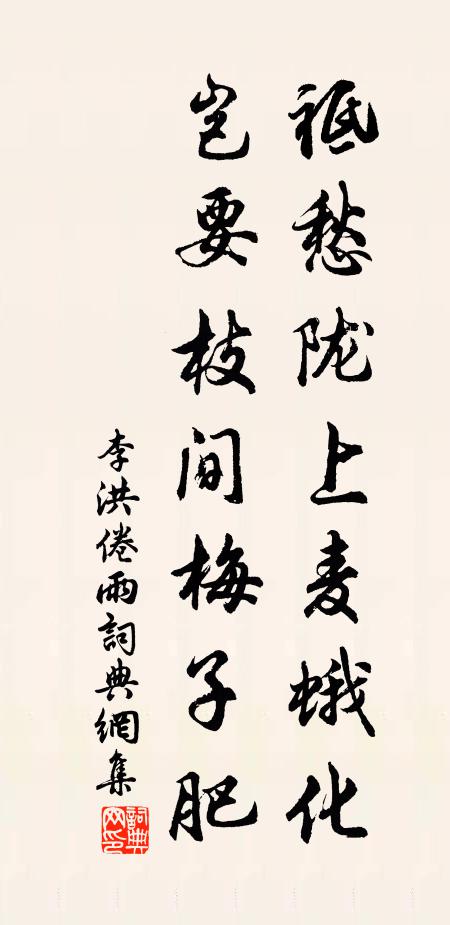 祗愁陇上麦蛾化
岂要枝间梅子肥
李洪倦雨詞典網集
詞典网印